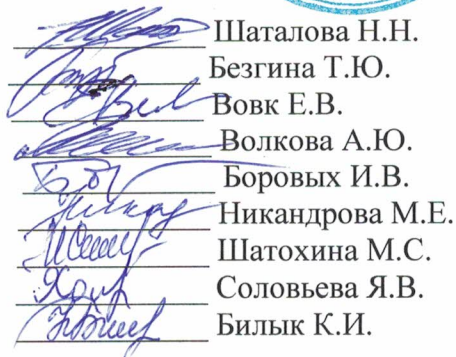 Шаталова Н.Н.
Безгина Т.Ю.
Вовк Е.В.
Волкова А.Ю.
Боровых И.В.
Никандрова М.Е.
Шатохина М.С.
Соловьева Я.В.
Билык К.И.